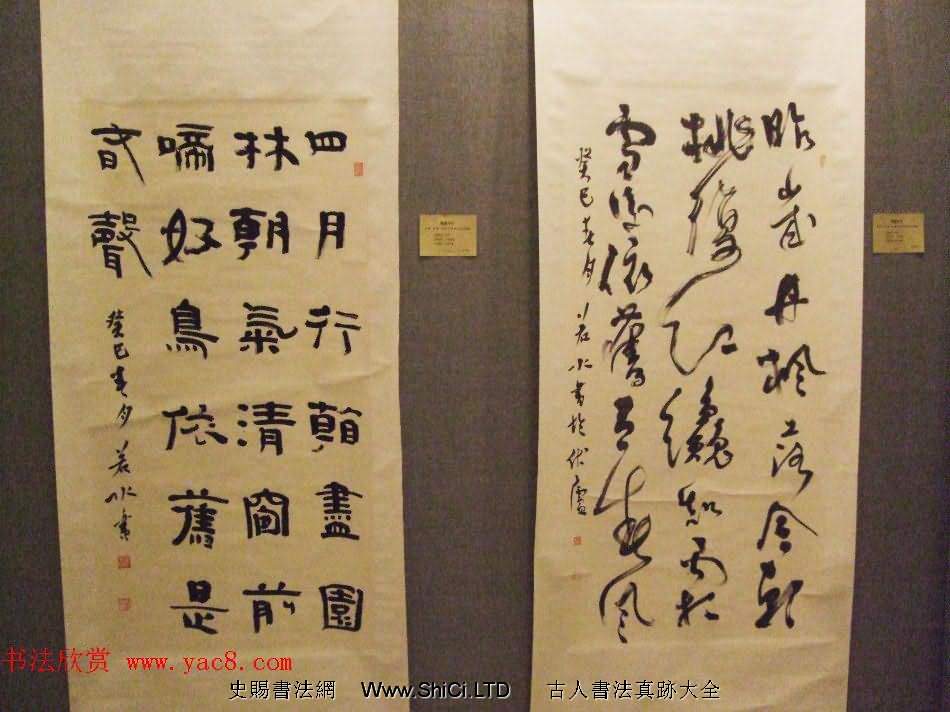 昨歲丹楓落今朝
桃復紅知
雪後依舊春風
癸巳春月若水書於伏廬
四月行盡園
林朝氣清窗前
啼好鳥依舊是
春聲
癸巳春月若水書
书法欣赏 www.yac8.com
史賜書法網 Www.ShiCi.LTD 古人書法真跡大全